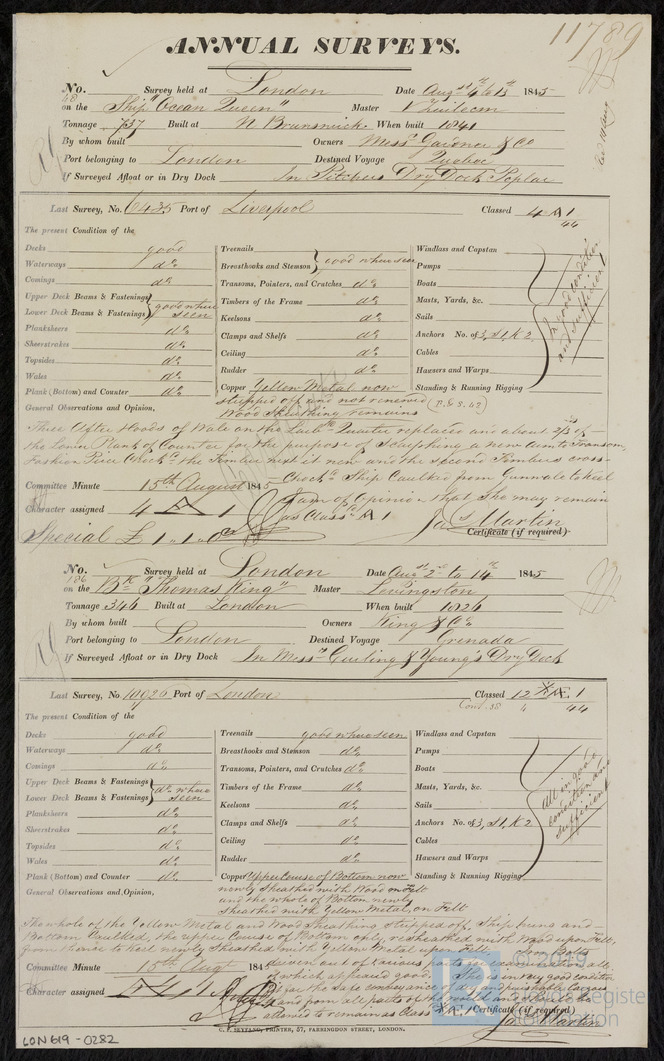 11789
ANNUAL SURVEYS.
No. 48 Survey held at London Date Augst 4 to 13th 1845
on the Ship "Ocean Queen" Master
Tonnage 737 Built at N Brunswick When built 1841
By whom built Owners Messrs Gardner & Co
Port belonging to London Destined Voyage Quebec
If Surveyed Afloat or in Dry Dock In Pitchers Dry Dock Poplar
Last Survey, No. 6435 Port of Liverpool Classed 4 A 1
44
The present Condition of the
Decks good Treenails Windlass and Capstan
Waterways do Breasthooks and Stemson good where seen Pumps
Comings do Transoms, Pointers, and Crutches do Boats
Upper Deck Beams & Fastenings good where seen Timbers of the Frame do Masts, Yards, &c.
Lower Deck Beams & Fastenings Keelsons do Sails
Planksheers do Clamps and Shelfs do Anchors No. of 3, S1, K2
Sheerstrakes do Ceiling do Cables
Topsides do Rudder do Hawsers and Warps
Wales do Copper Yellow Metal now Standing & Running Rigging
Plank (Bottom) and Counter do stripped off and not renewed
In good condition and sufficient
General Observations and Opinion, Wood Sheathing remains
Three After Hoods of Wale on the Larb Quarter replaced and about 2/3rds of
the Lower Plank of Counter for the purpose of Scarphing a new arm to Transom,
Fashion Piece Chock &c the Timber next it new and the second Timbers cross-
Chockd Ship Caulked from Gunwale to Keel
Committee Minute 15th August 1845 I am of Opinion that She may remain
Character assigned 4 A 1 as Classd A 1
Special £1..1..0 Jas Martin
Certificate (if required)
No. 186 Survey held at London Date Augst 2d to 14th 1845
on the Bk "Thomas King" Master Levingston
Tonnage 346 Built at London When built 1826
By whom built Owners King & Co
Port belonging to London Destined Voyage Grenada
If Surveyed Afloat or in Dry Dock In Messrs Curling & Young's Dry Dock
Last Survey, No. 10926 Port of London Classed 12 Æ 1
Cont. 38 4 44
The present Condition of the
Decks good Treenails good where seen Windlass and Capstan
Waterways do Breasthooks and Stemson do Pumps
Comings do Transoms, Pointers, and Crutches do Boats
Upper Deck Beams & Fastenings do where seen Timbers of the Frame do Masts, Yards, &c.
Lower Deck Beams & Fastenings Keelsons do Sails
Planksheers do Clamps and Shelfs do Anchors No. of 3, S1, K2
Sheerstrakes do Ceiling do Cables
Topsides do Rudder do Hawsers and Warps
Wales do Copper Upper Course of Bottom now Standing & Running Rigging
Plank (Bottom) and Counter do newly Sheathed with Wood on Felt
All in good condition and sufficient
General Observations and Opinion, and the whole of Bottom newly
Sheathed with Yellow Metal, on Felt
The whole of the Yellow Metal and Wood Sheathing stripped off, Ship hung and
Bottom Caulked, the upper Course of Bottom only resheathed with Wood upon Felt,
from thence to Keel newly Sheathed with Yellow Metal upon Felt.
driven out of various parts for examination all
Committee Minute 15th Augt 1845 of which appeared good. She is in very good condition
Character assigned for the safe conveyance of dry and perishable cargoes
to and from all parts of the world and
allowed to remain as Class Æ 1 Certificate (if required)
Jas Martin
C. F. SEYFANG, PRINTER, 57, FARRINGDON STREET, LONDON.
LON 619-0282
© 2019
Lloyd's Register
Foundation